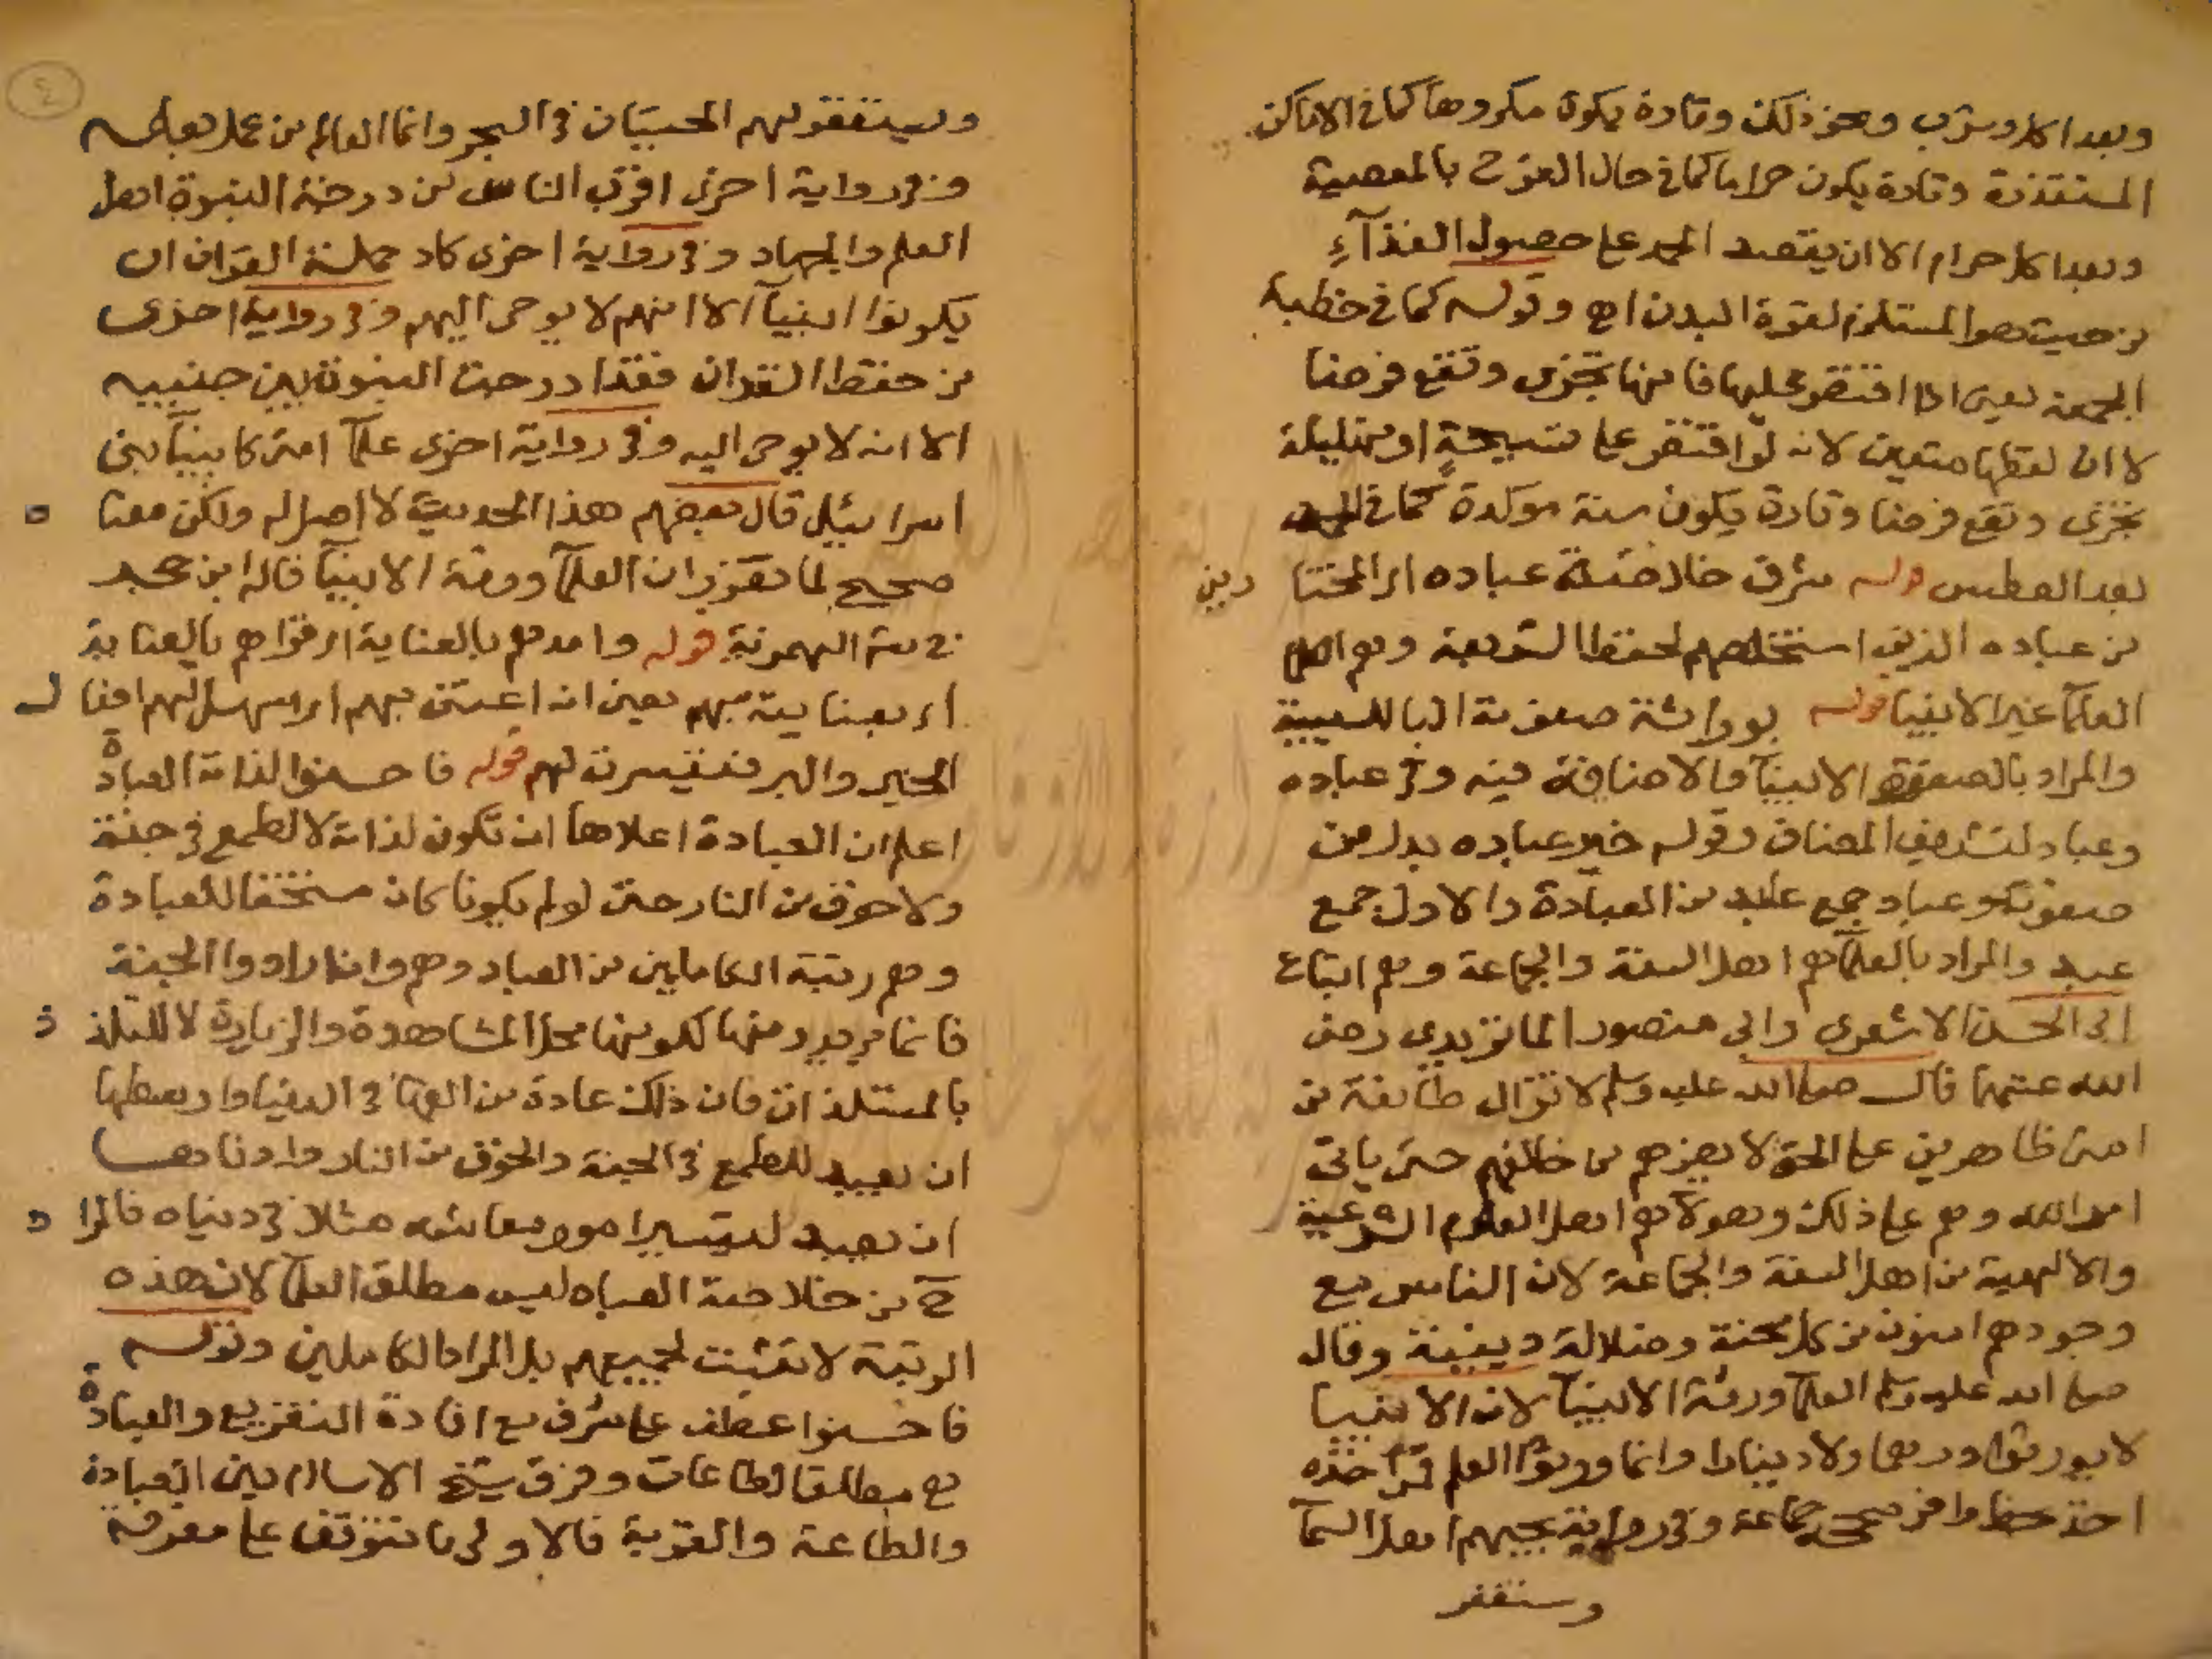 وبعد اكل وشرب ونحو ذلك وتارة يكون مكروها كما في الاماكن
المستقذرة وتارة يكون حراما كما في حال الفرح بالمعصية
وبعد اكل حرام الا ان يقصد الحمد على حصول الغذآءِ
من حيث هو المستلزم لقوة البدن اهـ وقوله كما في خطبة
الجمعة يعني اذا اقتصر عليها فانها تجزى وتقع فرضا
لا ان لفظها متعين لانه لو اقتصر على تسبيحةٍ او تهليلة
تجزى وتقع فرضا وتارة يكون سنة موكدة كما في الحمد
بعد العطس قوله شرف خلاصة عباده اي المختا رين
من عباده الذين استخلصهم لحفظ الشريعة وهم
العلمآ غير الانبيا قوله بوراثة صفوته البا للسببية
والمراد بالصفوة الانبيآ والاضافة فيه وفي عباده
وعباد لتشريف المضاف وقوله خير عباده بدل من
صفوته وعباد جمع عابد من العبادة والاول جمع
عبد والمراد بالعلمآ هم اهل السنة والجماعة وهم اتباع
ابي الحسن الاشعري وابي منصور الماتريدي رضى
الله عنهما قال صلى الله عليه وسلم لا تزال طايفة من
امتى ظاهرين على الحق لا يضرهم من خالفهم حتى ياتى
امر الله وهم على ذلك وهولآ هم اهل العلوم الشرعية
والالهية من اهل السنة والجماعة لان الناس مع
وجودهم امنون من كل محنة وضلالة دينية وقال
صلى الله عليه وسلم العلمآ ورثة الانبيآ لان الانبيا
لا يورثوا درهما ولا دينارا وانما ورثوا العلم فمن اخذه
اخذ حظ وافر صححه جماعة وفي رواية يحبهم اهل السمآ
وستغفر
٤
ويستغفر لهم الحيتان في البحر وانما العالم من عمل بعلمه
وفي رواية اخرى اقرب الناس من درجة النبوة اهل
العلم والجهاد وفي رواية اخرى كاد حملة القران ان
يكونوا انبيآ الا انهم لا يوحى اليهم وفي رواية اخرى
من حفظ القران فقد ادرجت النبوة بين جنبيه
الا انه لا يوحى اليه وفي رواية اخرى علمآ امتى كانبيآ بنى
اسرائيل قال بعضهم هذا الحديث لا اصل له ولكن معنا ه
صحيح لما تقرر ان العلمآ ورثة الانبيآ قاله ابن حجر
في الهمزية قوله وامدهم بالعناية اي قواهم بالعناية
اي بعنايته بهم يعنى انه اعتنى بهم اي سهل لهم افعا ل
الخير والبر فتيسرت لهم قوله فاحسنوا لذاته العبادة
اعلم ان العبادة اعلاها ان تكون لذاته لا لطمع في جنة
ولا خوف من النار حتى لو لم يكونا كان مستحقا للعبادة
وهم رتبة الكاملين من العباد وهم وان ارادوا الجنة
فانما مريد منها لكونها محل المشاهدة والزيارة لا للتلذ ذ
بالمستلذات فان ذلك عادة من في الدنيا واوسطها
ان يعبد للطمع في الجنة والخوف من النار وادناها
ان يعبد لتيسير امور معاشه مثلا في دنياه فالمرا د
ح من خلاصة العباد ليس مطلق العلمآ لان هذه
الرتبة لا تثبت لجميعهم بل المراد الكاملين وقوله
فاحسنوا عطف على شرف مع افادة التفريع والعبادة
هى مطلق الطاعات وفرق شيخ الاسلام بين العبادة
والطاعة والقربة فالاولى ما تتوقف على معرفة